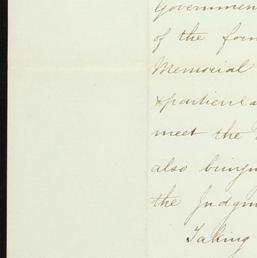 Governmen
of the for
Memorial
& particula
meet the
also bringi
the Judgm
Taking